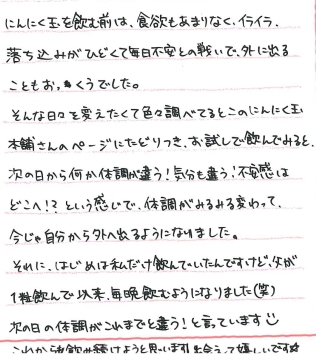 にんにく玉を飲む前は、食欲もあまりなく、イライラ、
落ち込みがひどくて毎日不安との戦いで、外に出る
こともおっくうでした。
そんな日々を変えたくて色々調べてるとこのにんにく玉
本舗さんのページにたどりつき、お試しで飲んでみると、
次の日から何か体調が違う!気分も違う!不安感は
どこへ!?という感じで、体調がみるみる変わって、
今じゃ自分から外へ出るようになりました。
それに、はじめは私だけ飲んでいたんですけど、父が
1粒飲んで以来、毎晩飲むようになりました(笑)
次の日の体調がこれまでと違う!と言っています
これからも飲み続けようと思います!出会えて嬉しいです☆